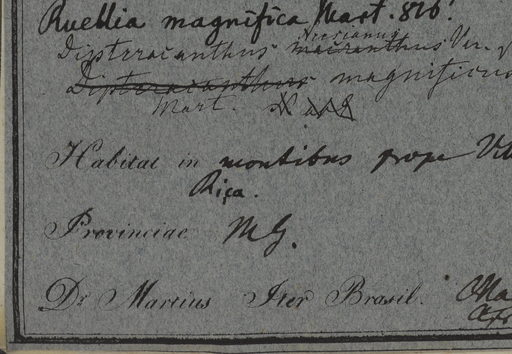 Ruellia magnifica Mart. 816.
Neesianus
Dipteracanthus macranthus Var.
Dipteracanthus magnificus
Mart.
Habitat in montibus prope Vil
Rica.
Provinciae MG.
Dr Martius Iter Brasil.